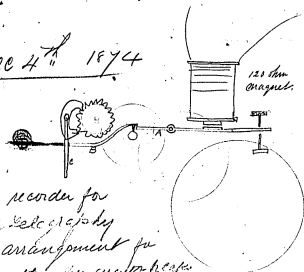 Dec 4th 1874
120 ohm
magnet.
A
C
recorder for
telegraphy
arrangement for